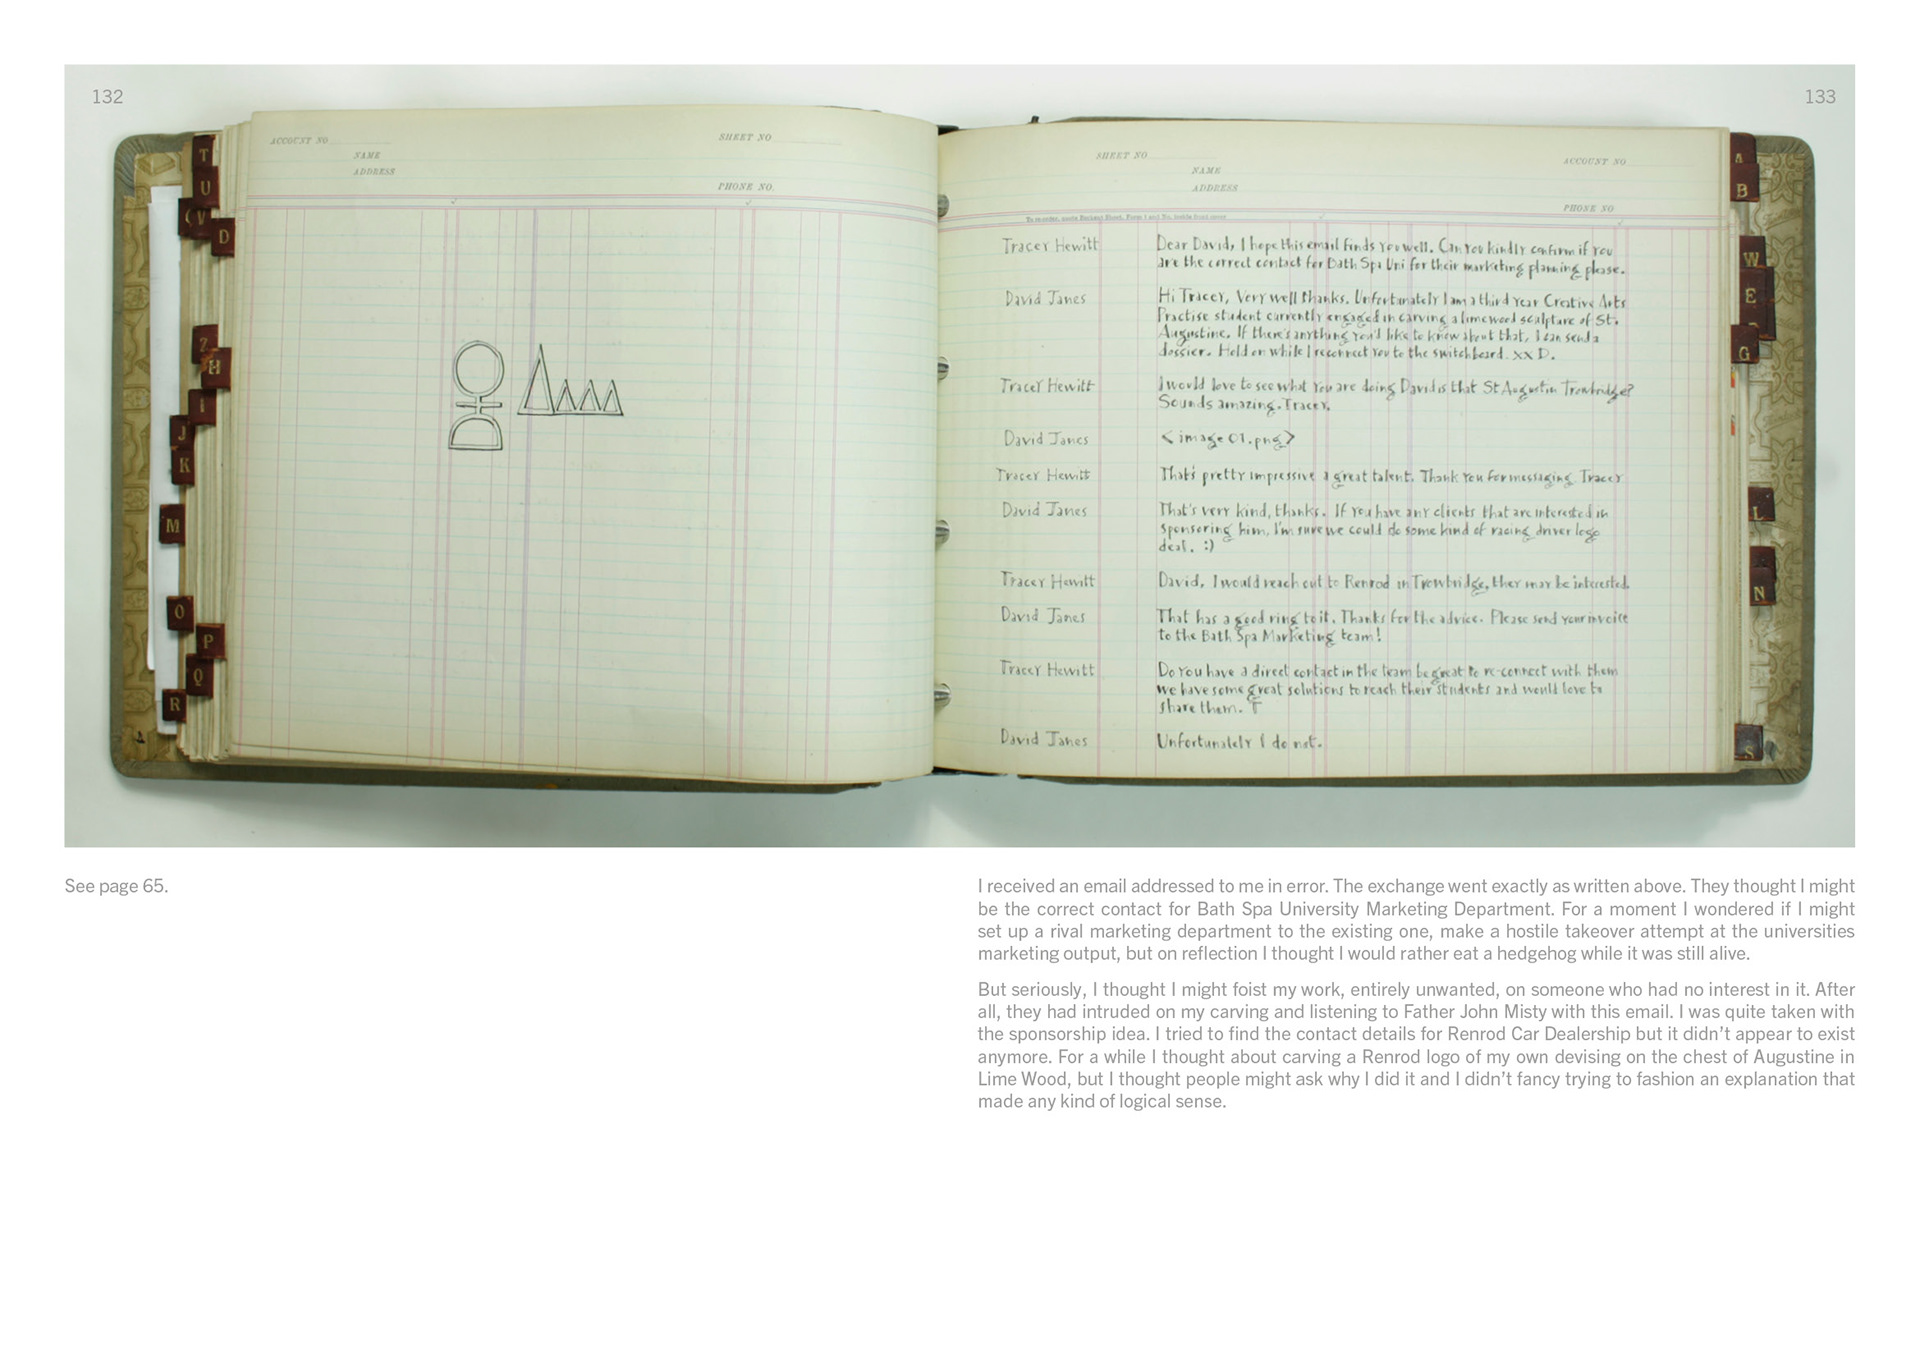 132
133
ACCOUNT NO
SHEET NO
NAME
ADDRESS
PHONE NO.
T
U
V
D
Z
H
I
J
K
M
O
P
Q
R
SHEET NO
ACCOUNT NO
NAME
ADDRESS
PHONE NO
A
B
W
E
G
L
N
S
Tracey Hewitt Dear David, I hope this email finds you well. Can you kindly confirm if you
are the correct contact for Bath Spa Uni for their marketing planning please.
David Janes Hi Tracey, Very well thanks. Unfortunately I am a third year Creative Arts
Practise student currently engaged in carving a limewood sculpture of St.
Augustine. If there's anything you'd like to know about that, I can send a
dossier. Hold on while I reconnect you to the switchboard. xx D.
Tracey Hewitt I would love to see what you are doing David is that St Augustin Trowbridge?
Sounds amazing. Tracey.
David Janes <image01.png>
Tracey Hewitt That's pretty impressive a great talent. Thank you for messaging Tracey
David Janes That's very kind, thanks. If you have any clients that are interested in
sponsoring him, I'm sure we could do some kind of racing driver logo
deal. :)
Tracey Hewitt David, I would reach out to Renrod in Trowbridge, they may be interested.
David Janes That has a good ring to it. Thanks for the advice. Please send your invoice
to the Bath Spa Marketing team!
Tracey Hewitt Do you have a direct contact in the team be great to re-connect with them
we have some great solutions to reach their students and would love to
share them. T
David Janes Unfortunately I do not.
See page 65.
I received an email addressed to me in error. The exchange went exactly as written above. They thought I might
be the correct contact for Bath Spa University Marketing Department. For a moment I wondered if I might
set up a rival marketing department to the existing one, make a hostile takeover attempt at the universities
marketing output, but on reflection I thought I would rather eat a hedgehog while it was still alive.
But seriously, I thought I might foist my work, entirely unwanted, on someone who had no interest in it. After
all, they had intruded on my carving and listening to Father John Misty with this email. I was quite taken with
the sponsorship idea. I tried to find the contact details for Renrod Car Dealership but it didn't appear to exist
anymore. For a while I thought about carving a Renrod logo of my own devising on the chest of Augustine in
Lime Wood, but I thought people might ask why I did it and I didn't fancy trying to fashion an explanation that
made any kind of logical sense.